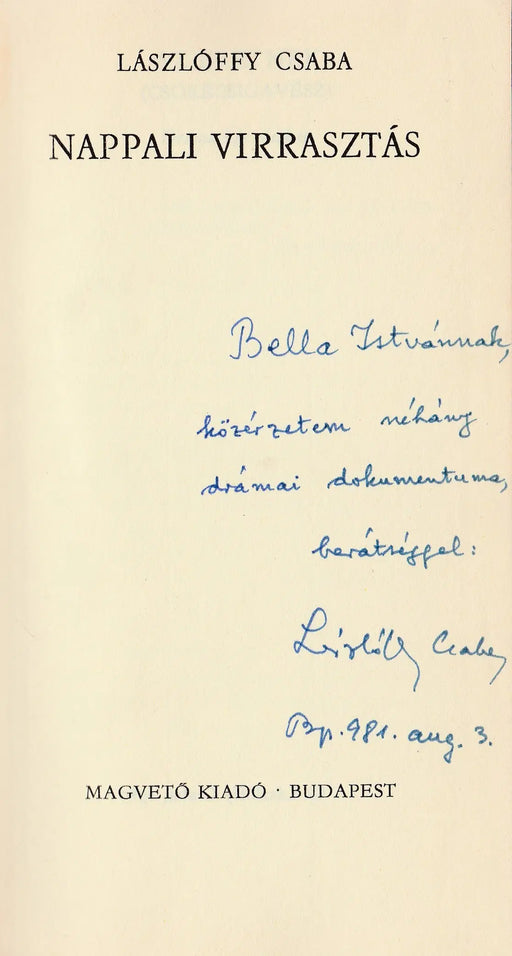 LÁSZLÓFFY CSABA
NAPPALI VIRRASZTÁS
Bella Istvánnak,
közérzetem néhány
drámai dokumentuma,
barátsággal:
Lászlóffy Csaba
Bp. 981. aug. 3.
MAGVETŐ KIADÓ · BUDAPEST